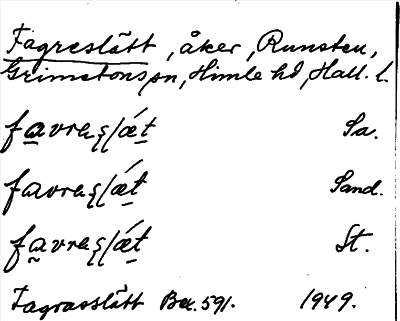 Fagreslätt, åker, Runsten,
Grimetons sn, Himle hd, Hall. l.
favraslǽt Sa.
favraslǽt Sand.
favraslǽt St.
Fagrasslätt Bex. 591. 1949.